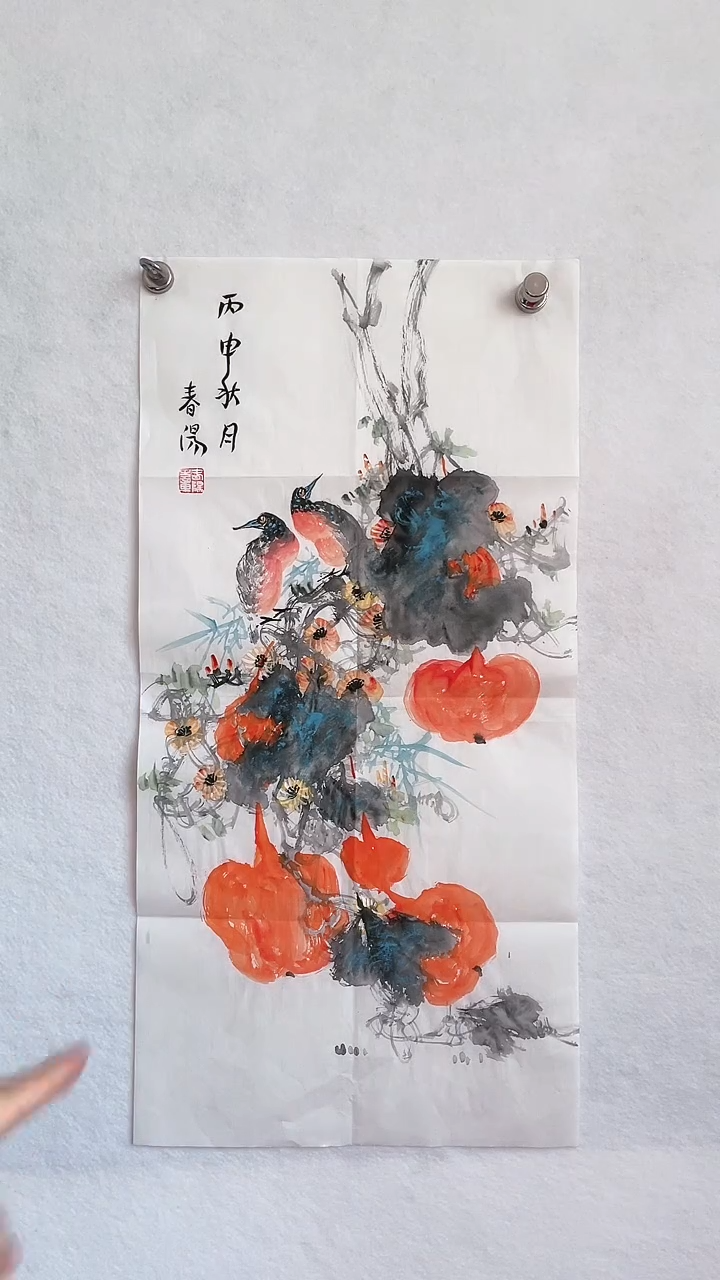 丙申秋月
春陽